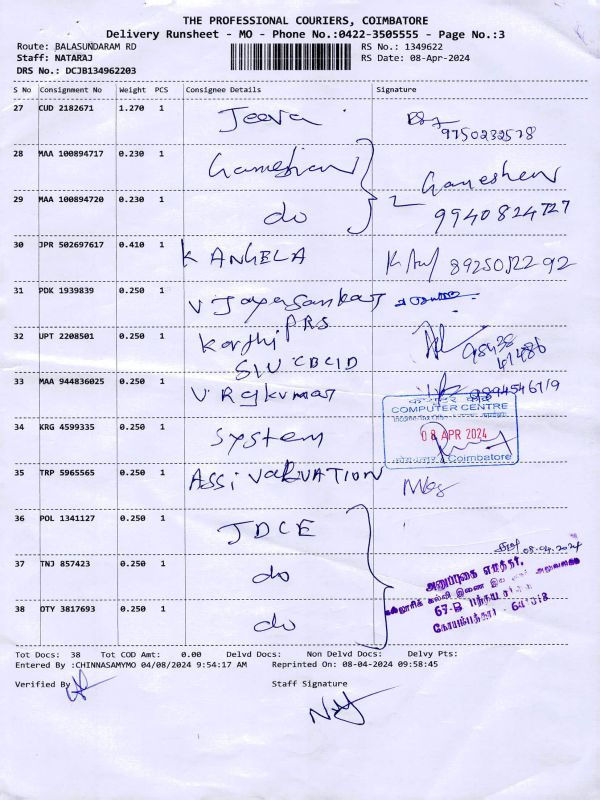 THE PROFESSIONAL COURIERS, COIMBATORE
Delivery Runsheet - MO - Phone No.:0422-3505555 - Page No.:3
Route: BALASUNDARAM RD RS No.: 1349622
Staff: NATARAJ RS Date: 08-Apr-2024
DRS No.: DCJB134962203
S No Consignment No Weight PCS Consignee Details Signature
27 CUD 2182671 1.270 1 Jeeva
9750232578
28 MAA 100894717 0.230 1 Ganeshan } 2 Ganeshan
29 MAA 100894720 0.230 1 do 9940824727
30 JPR 502697617 0.410 1 K ANGELA
31 PDK 1939839 0.250 1 V Jayasankar
PRS
32 UPT 2208501 0.250 1 Karthi
SIU CBCID
33 MAA 944836025 0.250 1 V Rajkumar
COMPUTER CENTRE
34 KRG 4599335 0.250 1 System 08 APR 2024
Coimbatore
35 TRP 5965565 0.250 1 Assi VALUATION
36 POL 1341127 0.250 1 JDCE
08.04.2024
37 TNJ 857423 0.250 1 do
38 OTY 3817693 0.250 1 do
Tot Docs: 38 Tot COD Amt: 0.00 Delvd Docs: Non Delvd Docs: Delvy Pts:
Entered By :CHINNASAMYMO 04/08/2024 9:54:17 AM Reprinted On: 08-04-2024 09:58:45
Verified By Staff Signature